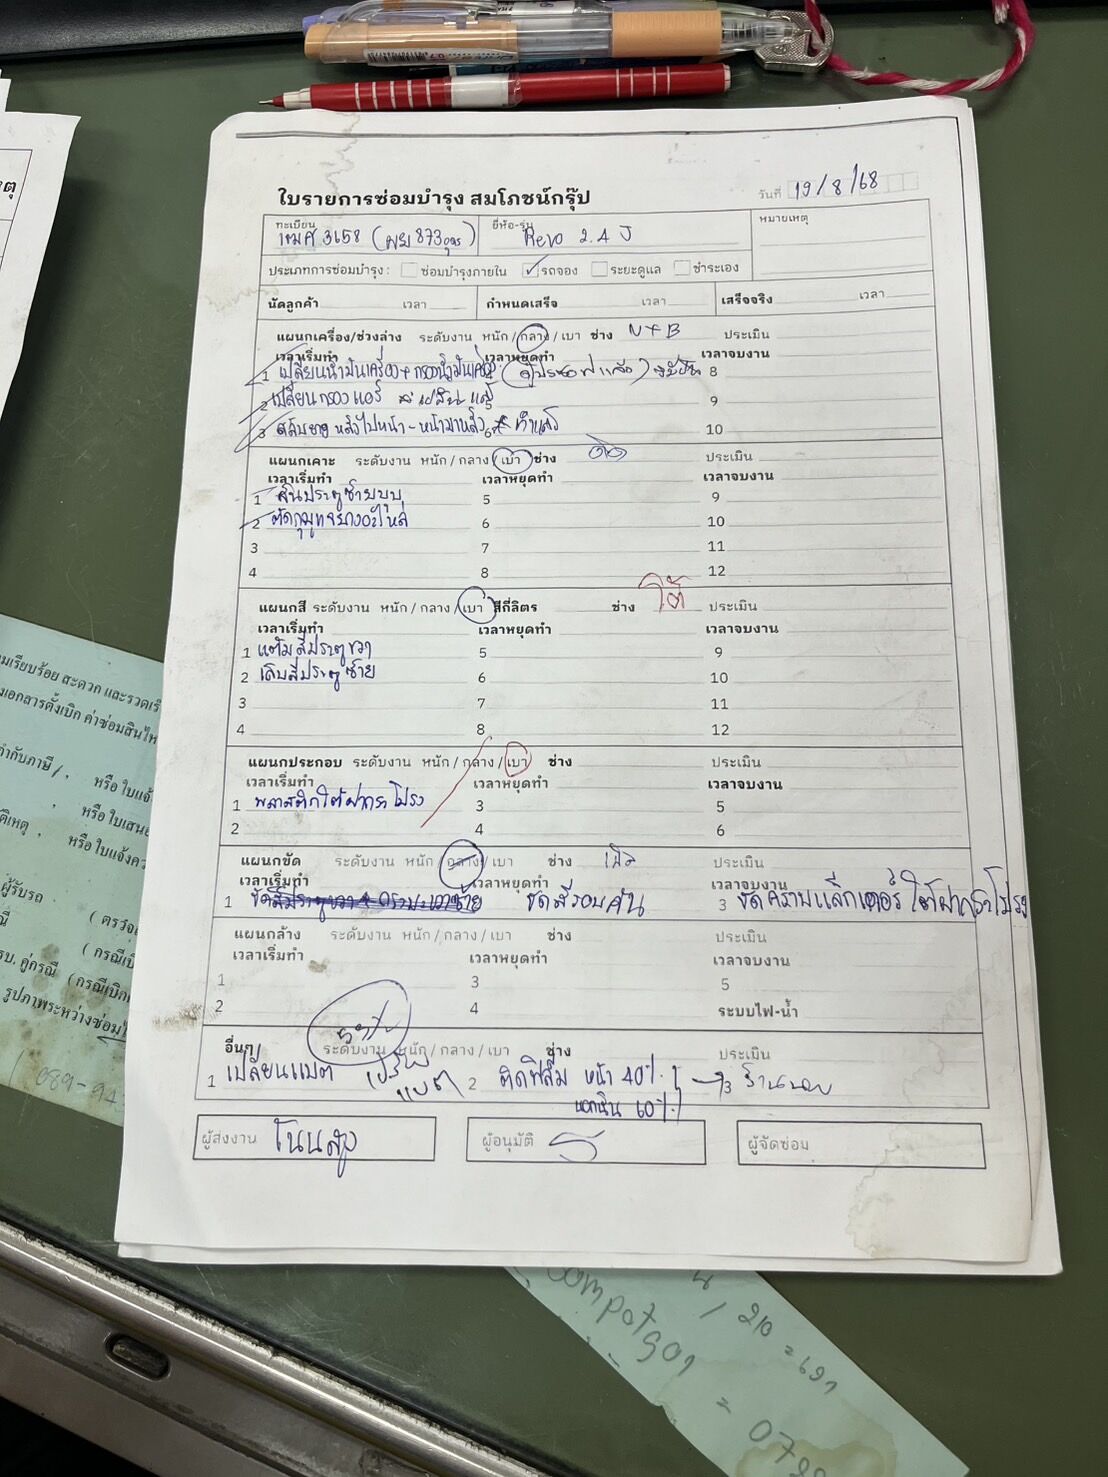 ใบรายการซ่อมบำรุง สมโภชน์กรุ๊ป
วันที่ 19/8/68
ทะเบียน
3658 (873
ยี่ห้อ-รุ่น
Revo 2.4 J
หมายเหตุ
ประเภทการซ่อมบำรุง : ซ่อมบำรุงภายใน ✓ รถจอง ระยะดูแล ชำระเอง
นัดลูกค้า เวลา กำหนดเสร็จ เวลา เสร็จจริง เวลา
แผนกเครื่อง/ช่วงล่าง ระดับงาน หนัก / กลาง / เบา ช่าง N+B ประเมิน
เวลาเริ่มทำ เวลาหยุดทำ เวลาจบงาน
1 เปลี่ยนน้ำมันเครื่อง + กรองน้ำมันเครื่อง 8
2 เปลี่ยนกรองแอร์ 9
3 สลับยาง หลังไปหน้า - หน้ามาหลัง 6 ทำแล้ว 10
แผนกเคาะ ระดับงาน หนัก / กลาง / เบา ช่าง ประเมิน
เวลาเริ่มทำ เวลาหยุดทำ เวลาจบงาน
1 สันประตูซ้ายบุบ 5 9
2 ตัดกุญแจยางอะไหล่ 6 10
3 7 11
4 8 12
แผนกสี ระดับงาน หนัก / กลาง / เบา สีกี่ลิตร ช่าง ใต้ ประเมิน
เวลาเริ่มทำ เวลาหยุดทำ เวลาจบงาน
1 แต้มสีประตูขวา 5 9
2 เก็บสีประตูซ้าย 6 10
3 7 11
4 8 12
แผนกประกอบ ระดับงาน หนัก / กลาง / เบา ช่าง ประเมิน
เวลาเริ่มทำ เวลาหยุดทำ เวลาจบงาน
1 พลาสติกใต้ฝากระโปรง 3 5
2 4 6
แผนกขัด ระดับงาน หนัก / กลาง / เบา ช่าง ประเมิน
เวลาเริ่มทำ เวลาหยุดทำ เวลาจบงาน
1 ขัด ขัดสีรอบคัน 3 ขัดคราบแล็กเกอร์ ใต้ฝากระโปรง
แผนกล้าง ระดับงาน หนัก / กลาง / เบา ช่าง ประเมิน
เวลาเริ่มทำ เวลาหยุดทำ เวลาจบงาน
1 3 5
2 4 ระบบไฟ-น้ำ
อื่นๆ ระดับงาน หนัก / กลาง / เบา ช่าง ประเมิน
1 เปลี่ยนแบต 2 ติดฟิล์ม หน้า 40% 3 ร้านนอก
60%
ผู้ส่งงาน ผู้อนุมัติ ผู้จัดซ่อม
สะดวก และรวดเร็
เอกสารตั้งเบิก ค่าซ่อมสินไห
กำกับภาษี
หรือ ใบแจ้
หรือ ใบเสนอ
หรือ ใบแจ้งคว
ผู้รับรถ
รูปภาพระหว่างซ่อม
089-94
/ 210 = 691
= 078